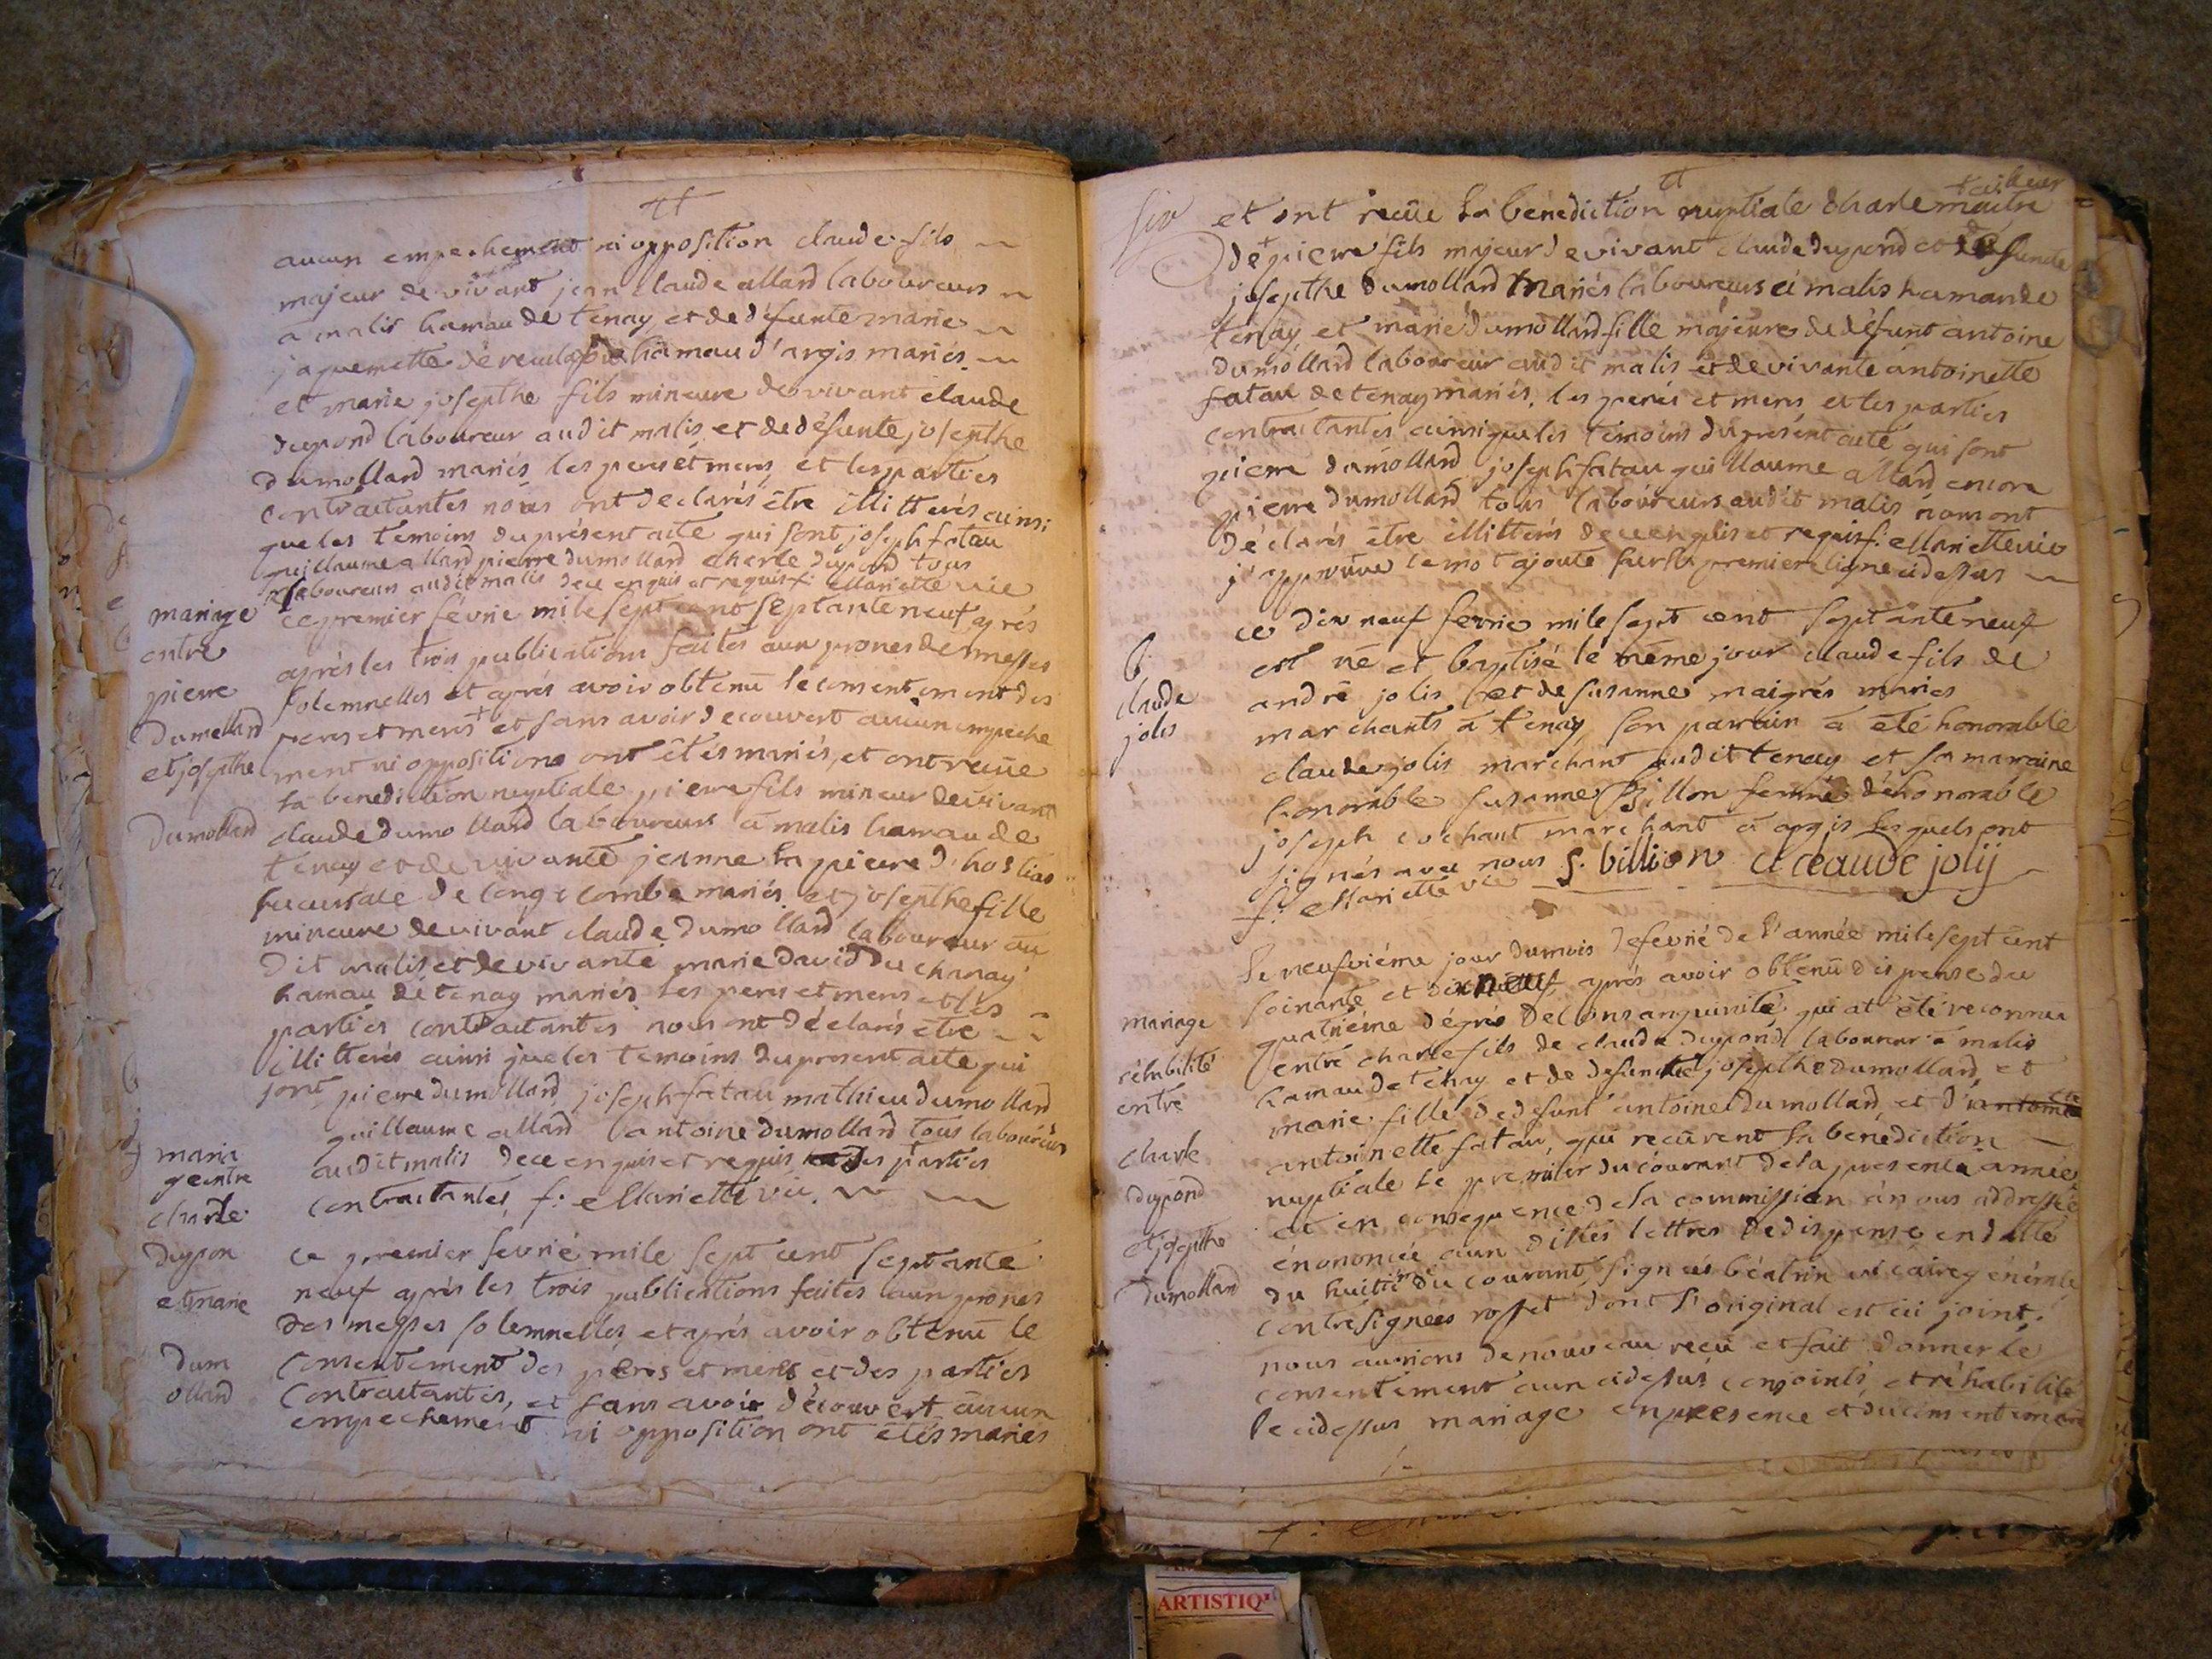 aucun empechement ni opposition claude fils
majeur de vivant jean claude allard laboureurs
a malis hamau de tenay et de défunte marie
jaquemette de hamau d'argis mariés
et marie josepthe fils mineure de vivant claude
dupond laboureur audit malis et de défunte josepthe
dumollard mariés les peres et meres et les parties
contractantes nous ont declarés être illitterés ainsi
que les temoins du présent acte qui sont joseph fatau
guillaume allard pierre dumollard charle dupond tous
laboureurs audit malis de ce enquis et requis f: Mariette vic
mariage
entre
pierre
Dumollard
et josepthe
Dumollard
ce premier février mile sept cent septante neuf aprés
aprés les trois publications faites aux prones de messes
solemnelles et aprés avoir obtenu le consentement des
peres et meres + et sans avoir decouvert aucun empeche
ment ni oppositions ont étés mariés, et ont recüe
la benediction nuptiale pierre fils mineur de vivant
claude dumollard laboureurs a malis hamau de
tenay et de vivante jeanne la pierre d'hostias
sucursale de longecombe mariés et josepthe fille
mineure de vivant claude dumollard laboureur au
dit malis et de vivante marie david du chanay
hamau de tenay mariés les peres et meres et les
parties contractantes nous ont déclarés être
illitterés ainsi que les temoins du present acte qui
sont pierre dumollard joseph fatau mathieu dumollard
guillaume allard antoine dumollard tous laboureurs
audit malis de ce enquis et requis parties
contractantes, f: Mariette vic.
maria
ge entre
charle
dupon
et marie
dum
ollard
ce premier fevrié mile sept cent septante
neuf aprés les trois publications faites aux prones
des messes solemnelles et aprés avoir obtenu le
consentement des peres et meres et des parties
contractantes, et sans avoir découvert aucun
empechement ni opposition ont étés mariés
et ont recüe la benediction nuptiale charle maitre
tailleur
de + pierre fils majeur de vivant claude dupond et defunte
josepthe dumollard mariés laboureurs a malis hamau de
tenay et marie dumollard fille majeure de défunt antoine
dumollard laboureur audit malis et de vivante antoinette
fatau de tenay mariés. les peres et meres et les parties
contractantes ainsi que les témoins du présent acte qui sont
pierre dumollard joseph fatau guillaume allard encore
pierre dumollard tous laboureurs audit malis nom ont
déclarés être illitterés de ce enquis et requis f. Mariette vic
j'approuve le mot ajouté sur la premiere ligne cidessus
b.
claude
jolis
ce dix neuf fevrie mile sept cent septante neuf
est né et baptisé le même jour claude fils de
andré jolis et de susanne maigrés maries
marchants a tenay son parrain a été honorable
claude jolis marchant audit tenay et sa maraine
honorable susanne Billon femme d'honorable
joseph cochant marchant a argis lesquels ont
signés avec nous S. billion claude jolij
f: Mariette vic
mariage
réhabilité
entre
charle
dupond
et josepthe
dumollard
Le neufviéme jour du mois de fevrié de l'année mile sept cent
soixante et dix neuf aprés avoir obtenu dispense du
quatriéme dégrés de consanguinité, qui at été reconnu
entre charle fils de claude dupond laboureur a malis
hamau de tenay et de defunte josepthe dumollard, et
marie fille de defunt antoine dumollard, et d'antoine
antoinette fatau, qui recûrent la benediction
nuptiale le premier du courant de la presente année
et en consequence de la commission a nous addressée
énononcée aux dittes lettres de dispense en datte
du huitième du courant, signées béatrix vicaire général
contresignées rosset dont l'original est ici joint.
nous aurions de nouveau recu et fait donner le
consentement aux cidessus conjoints, et réhabilité
le cidessus mariage en presence et du consentement
ARTISTIQ